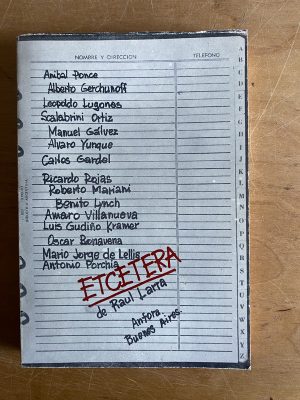 NOMBRE Y DIRECCION
TELEFONO
Anibal Ponce
Alberto Gerchunoff
Leopoldo Lugones
Scalabrini Ortiz
Manuel Gálvez
Alvaro Yunque
Carlos Gardel
Ricardo Rojas
Roberto Mariani
Benito Lynch
Amaro Villanueva
Luis Gudiño Kramer
Oscar Bonavena
Mario Jorge de Lellis
Antonio Porchia
ETCETERA
de Raul Larra
Anfora
Buenos Aires.
A
B
C
D
E
F
G
H
I
J
K
L
M
N
O
P
Q
R
S
T
U
V
W
X
Y
Z